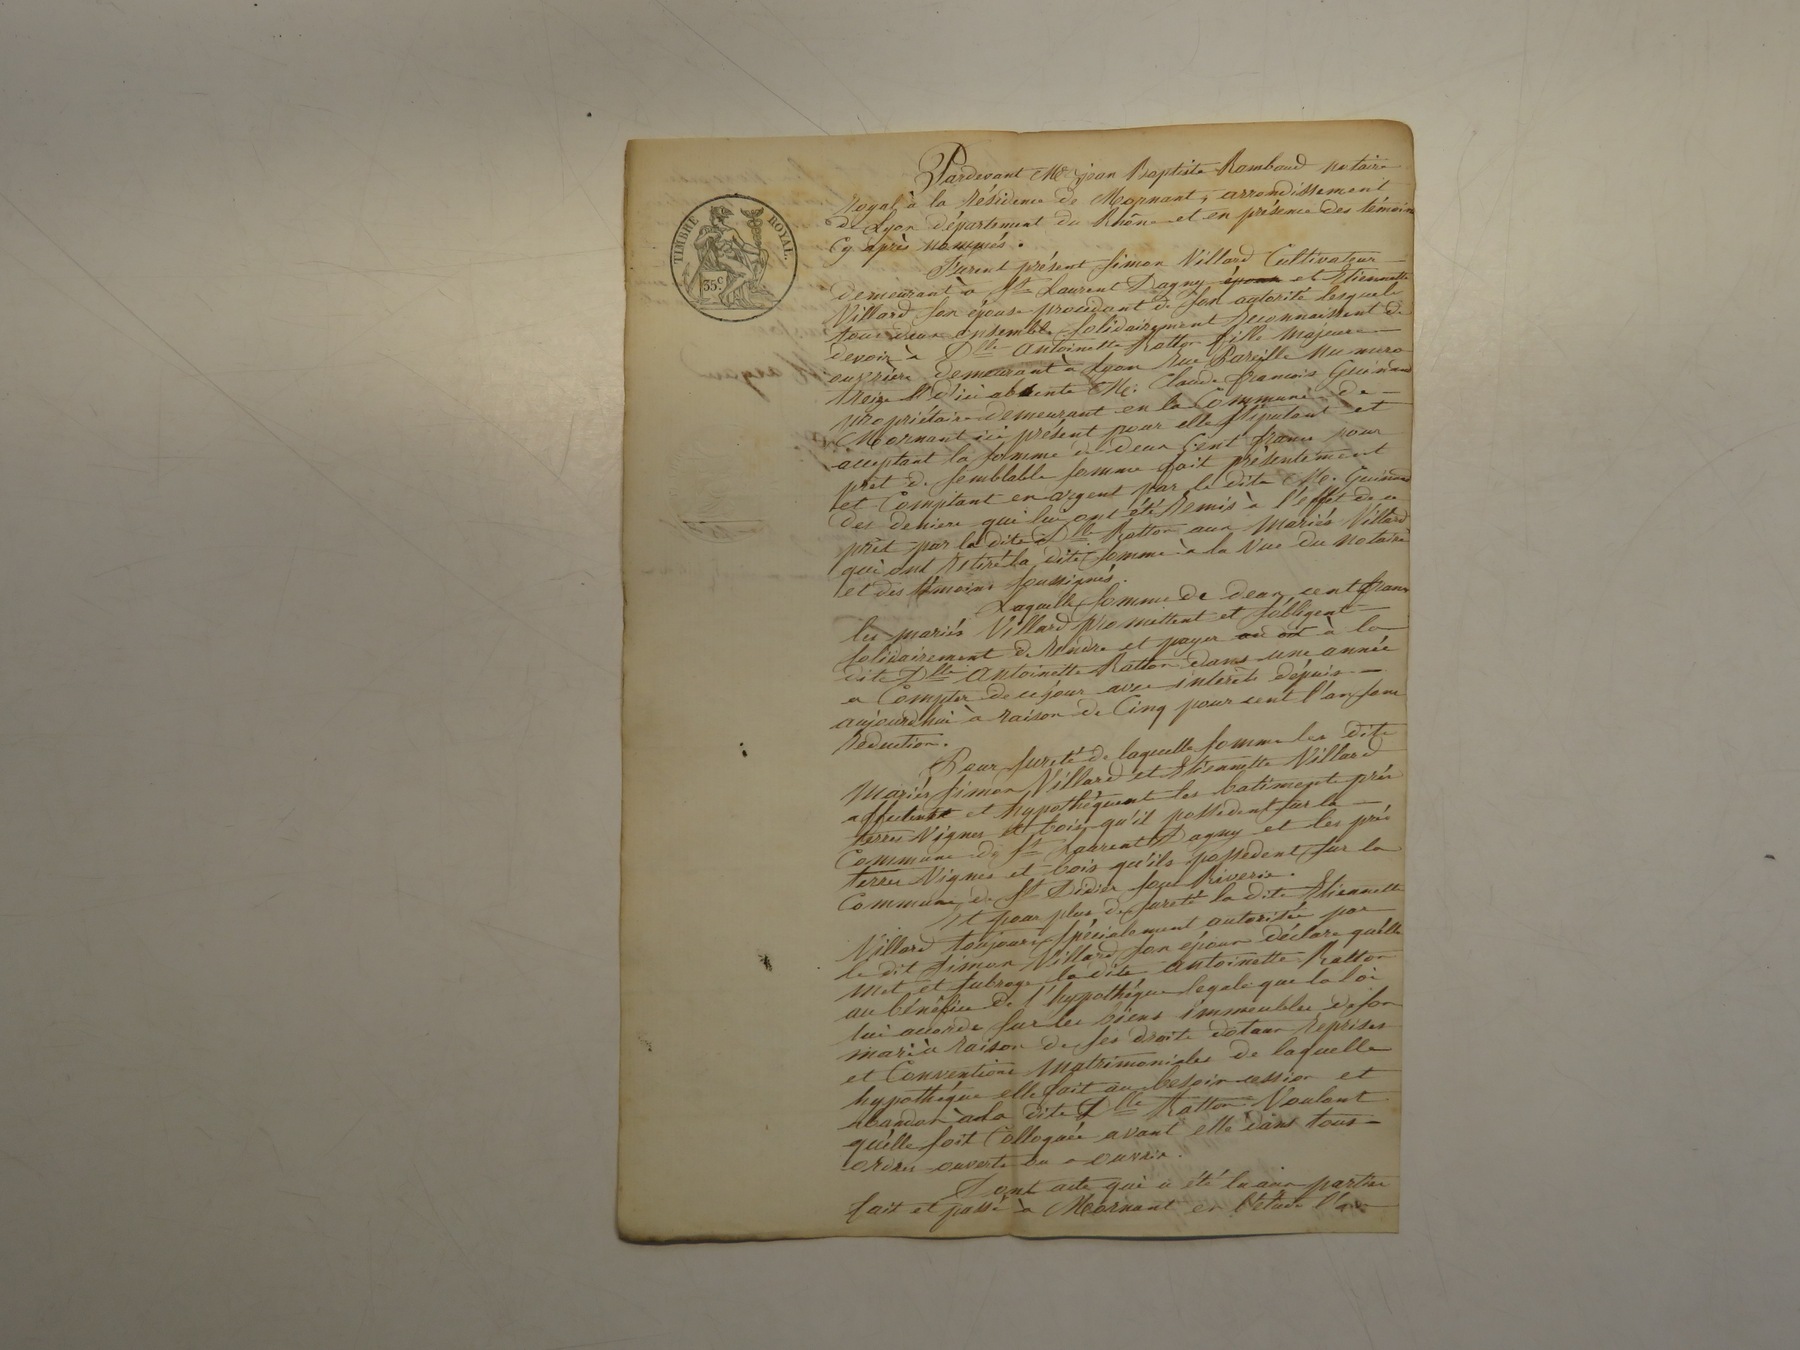 TIMBRE ROYAL.
35 c
Pardevant Me jean Baptiste Rambaud notaire
Royal à la Résidence de Mornant, arrondissement
de Lyon département du Rhône et en présence des témoins
Cy après nommés.
Furent présent Simon Villard Cultivateur
demeurant à St Laurent Dagny époux et Etiennette
Villard son épouse procédant de son autorité lesquels
tous deux ensemble solidairement Reconnaissent de
devoir à Dlle Antoinette Ratton fille majeure
ouvrière demeurant à Lyon Rue Pareille numero
treize d'ici absente Mr. Claude françois Guinand
propriétaire demeurant en la Commune de
Mornant ici présent pour elle stipulant et
acceptant la somme de deux Cent francs pour
prêt de semblable somme fait présentement
et Comptant en argent par le dite Mr. Guinand
des deniers qui lui ont été Remis à l'effet de ce
prêt par la dite Dlle Ratton aux mariés Villard
qui ont Retiré la dite somme à la Vue du notaire
et des témoins soussignés.
Laquelle somme de deux cent francs
les mariés Villard promettent et s'obligent
solidairement de Rendre et payer ou ont à la
dite Dlle Antoinette Ratton dans une année
a Compter de ce jour avec intérêts dépuis
aujourdhui à Raison de Cinq pour cent l'an sans
Réduction.
Pour sureté de laquelle somme les dits
Mariés Simon Villard et Etiennette Villard
affectent et hypothéquent les batiments prés
terres Vignes et bois qu'il possedent sur la
Commune de St Laurent Dagny et les prés
terres Vignes et bois qu'ils possedent sur la
Commune de St Didier sous Riverie.
Et pour plus de sureté la dite Etiennette
Villard toujours spécialement autorisée par
le dit Simon Villard son époux déclare quélle
met et subroge la dite Antoinette Ratton
au bénéfice de l'hypothéque legale que la loi
lui accorde sur les biens immeubles de son
mari à Raison de ses droits dotaux Reprises
et Conventions Matrimoniales de laquelle
hypothéque elle fait au besoin cession et
abandon à la dite Dlle Ratton Voulant
quélle soit Colloquée avant elle dans tous
ordres ouverts ou a ouvrir.
Dont acte qui a été lu aux parties
fait et passé à Mornant en l'étude l'an